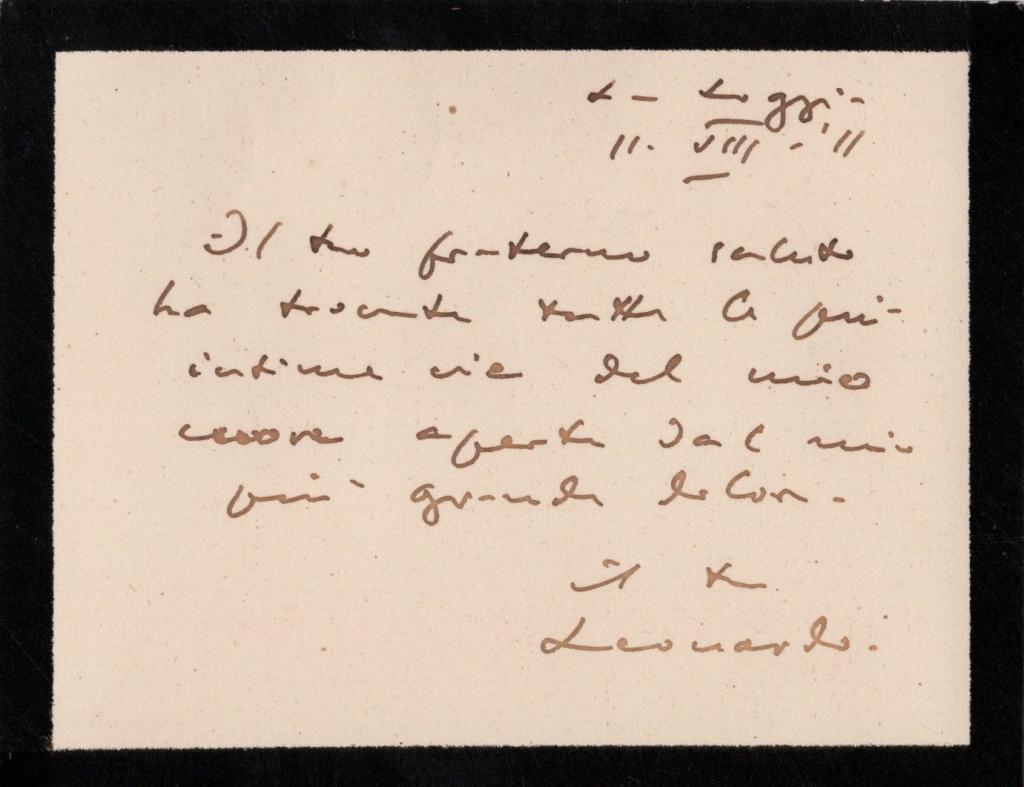 La Loggia
11. VIII. 11
Il tuo fraterno saluto
ha trovato tutte le più
intime vie del mio
cuore aperte dal mio
più grande dolore.
il tuo
Leonardo.